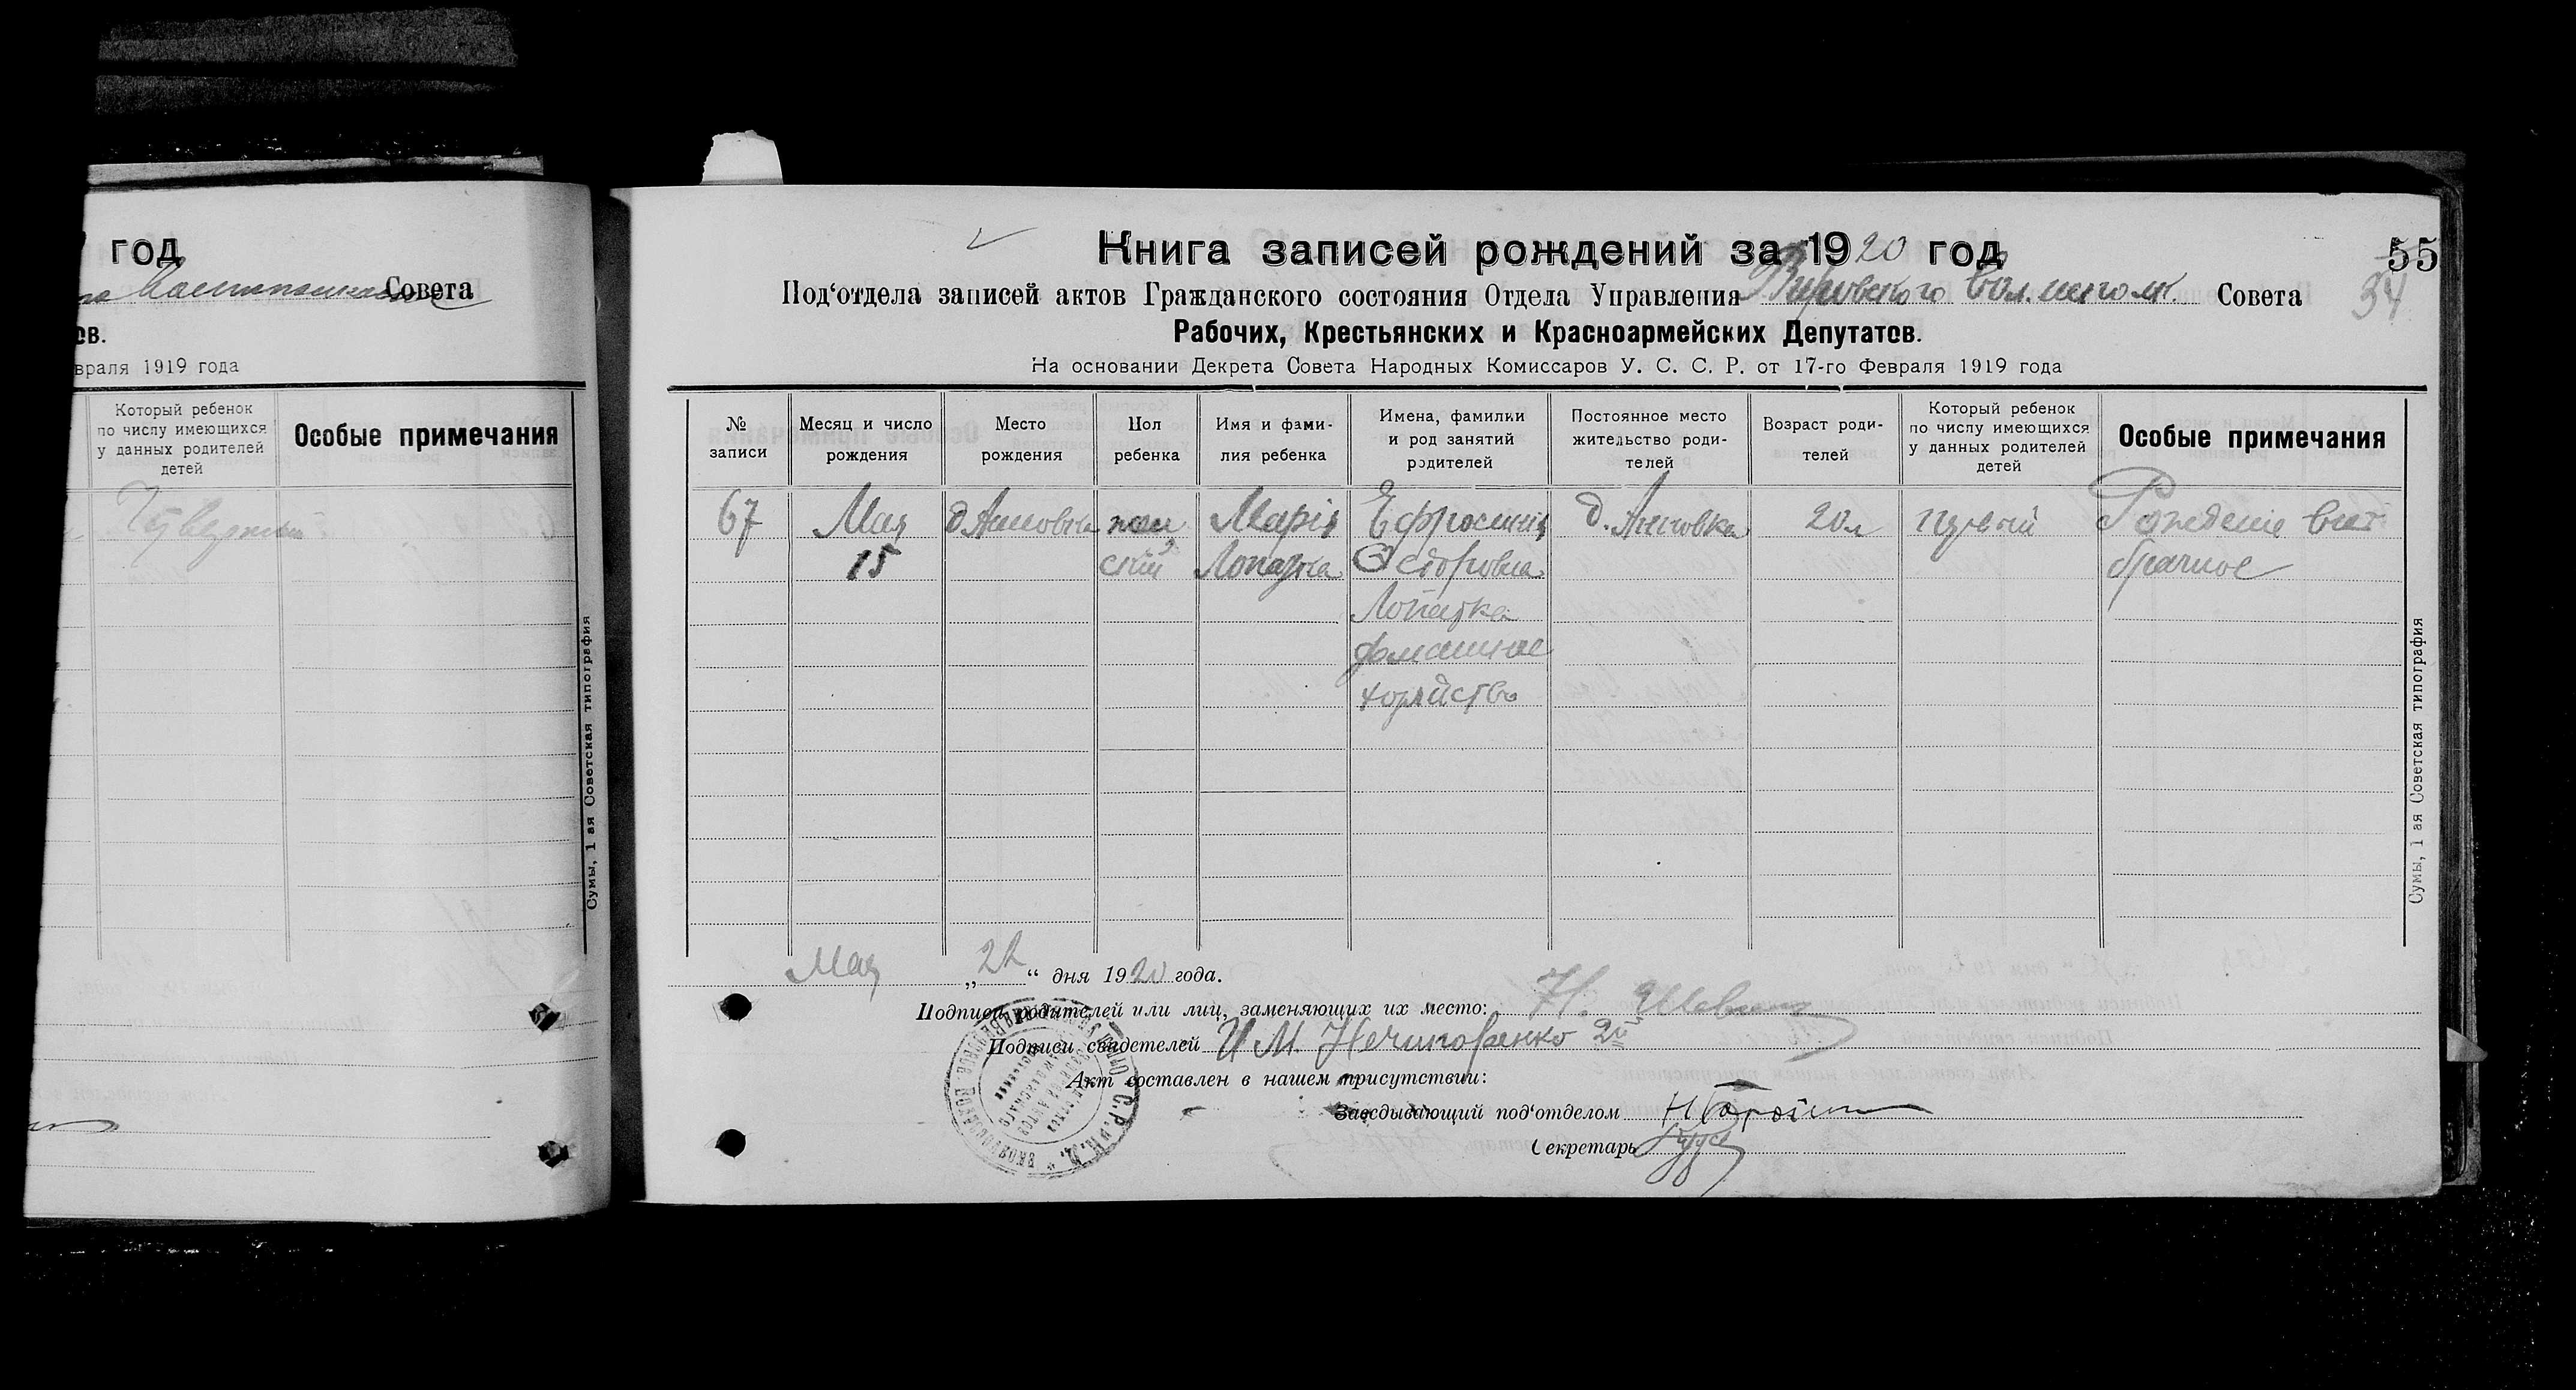 год
Совета
ов.
враля 1919 года
Который ребенок
по числу имеющихся
у данных родителей
детей
Особые примечания
Сумы, 1 ая Советская типография
Книга записей рождений за 1920 год
55
34
Под‘отдела записей актов Гражданского состояния Отдела Управления Вировского Вол. исполк. Совета
Рабочих, Крестьянских и Красноармейских Депутатов.
На основании Декрета Совета Народных Комиссаров У. С. С. Р. от 17-го Февраля 1919 года
№
записи
Месяц и число
рождения
Место
рождения
Пол
ребенка
Имя и фами-
лия ребенка
Имена, фамилии
и род занятий
родителей
Постоянное место
жительство роди-
телей
Возраст роди-
телей
Который ребенок
по числу имеющихся
у данных родителей
детей
Особые примечания
67
Мая
15
д. Анновка
жен
ский
Марія
Лопатка
Ефросинія
Лопатка
домашнее
хозяйство
д. Анновка
20 л
первый
Рождение вне
брачное
Мая „22“ дня 1920 года.
Подписи родителей или лиц, заменяющих их место: Н.
Подписи свидетелей И М. Нечипоренко
Акт составлен в нашем присутствии:
Заведывающий под‘отделом
Секретарь
Сумы, 1 ая Советская типография